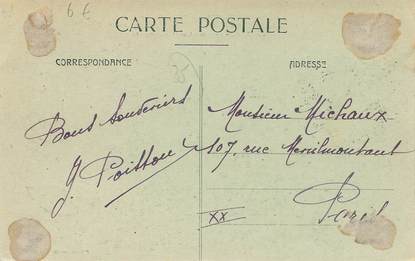 6 €
CARTE POSTALE
CORRESPONDANCE
ADRESSE
Bons Souvenirs
J. Poitton
Monsieur Michaux
107, rue Menilmontant
Paris
XX